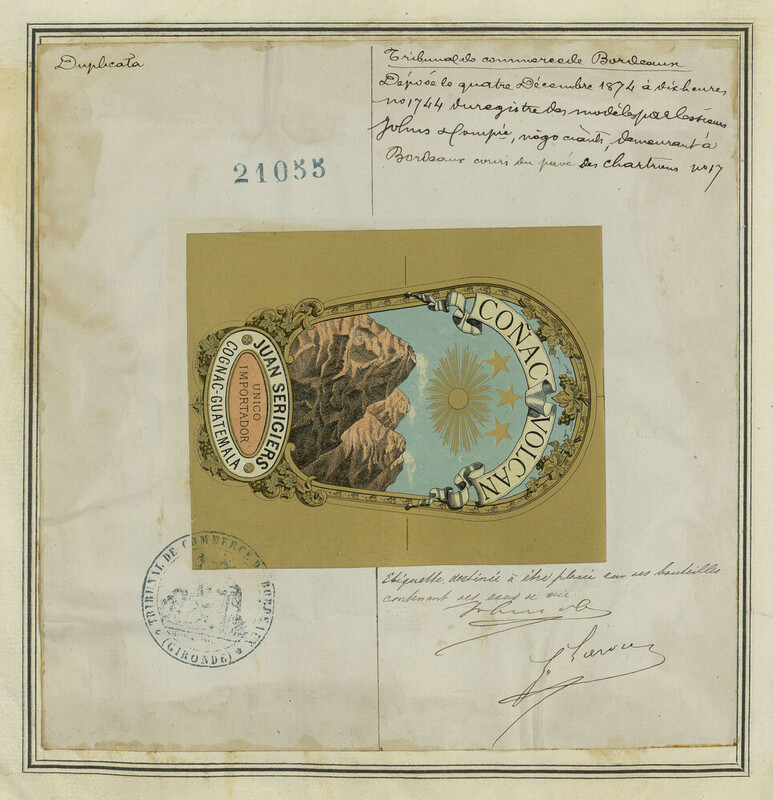 Duplicata
Tribunal de commerce de Bordeaux
Déposé le quatre Décembre 1874 à dix heures
no 1744 du registre des modèles par les sieurs
Johns & Compie, négociants, demeurant à
Bordeaux cours du pavé des chartrons no 17
21055
COÑAC VOLCAN
JUAN SERIGIERS
UNICO
IMPORTADOR
COGNAC-GUATEMALA
TRIBUNAL DE COMMERCE DE BORDEAUX
(GIRONDE)
Etiquette destinée à être placée sur ses bouteilles
contenant des eaux de vie